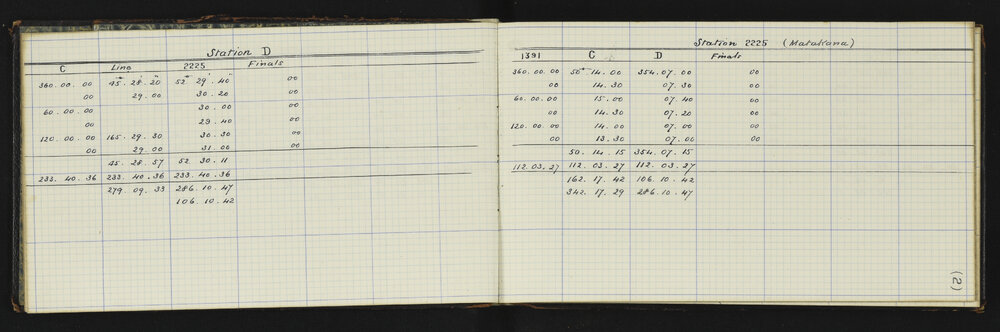 Station D
C Line 2225 Finals
360.00.00 45.28.20 52.29.40 00
00 29.00 30.20 00
60.00.00 30.00 00
00 29.40 00
120.00.00 165.29.30 30.30 00
00 29.00 31.00 00
45.28.57 52.30.11
233.40.36 233.40.36 233.40.36
279.09.33 286.10.47
106.10.42
Station 2225 (Matakana)
1391 C D Finals
360.00.00 50.14.00 354.07.00 00
00 14.30 07.30 00
60.00.00 15.00 07.40 00
00 14.30 07.20 00
120.00.00 14.00 07.00 00
00 13.30 07.00 00
50.14.15 354.07.15
112.03.27 112.03.27 112.03.27
162.17.42 106.10.42
342.17.29 286.10.47
(2)